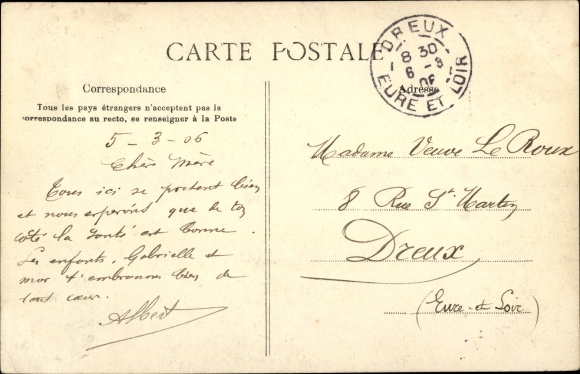 CARTE POSTALE
DREUX
8 30
6 - 3
06
EURE ET LOIR
Correspondance
Tous les pays étrangers n'acceptent pas la
correspondance au recto, se renseigner à la Poste
5 - 3 - 06
Chère Mère
Tous ici se portent bien
et nous esperons que de ton
côté la santé est bonne.
Les enfants, Gabrielle et
moi t'embrassons bien de
tout cœur.
Albert
Adresse
Madame Veuve Le Roux
8 Rue St Martin
Dreux
(Eure-et-Loir)